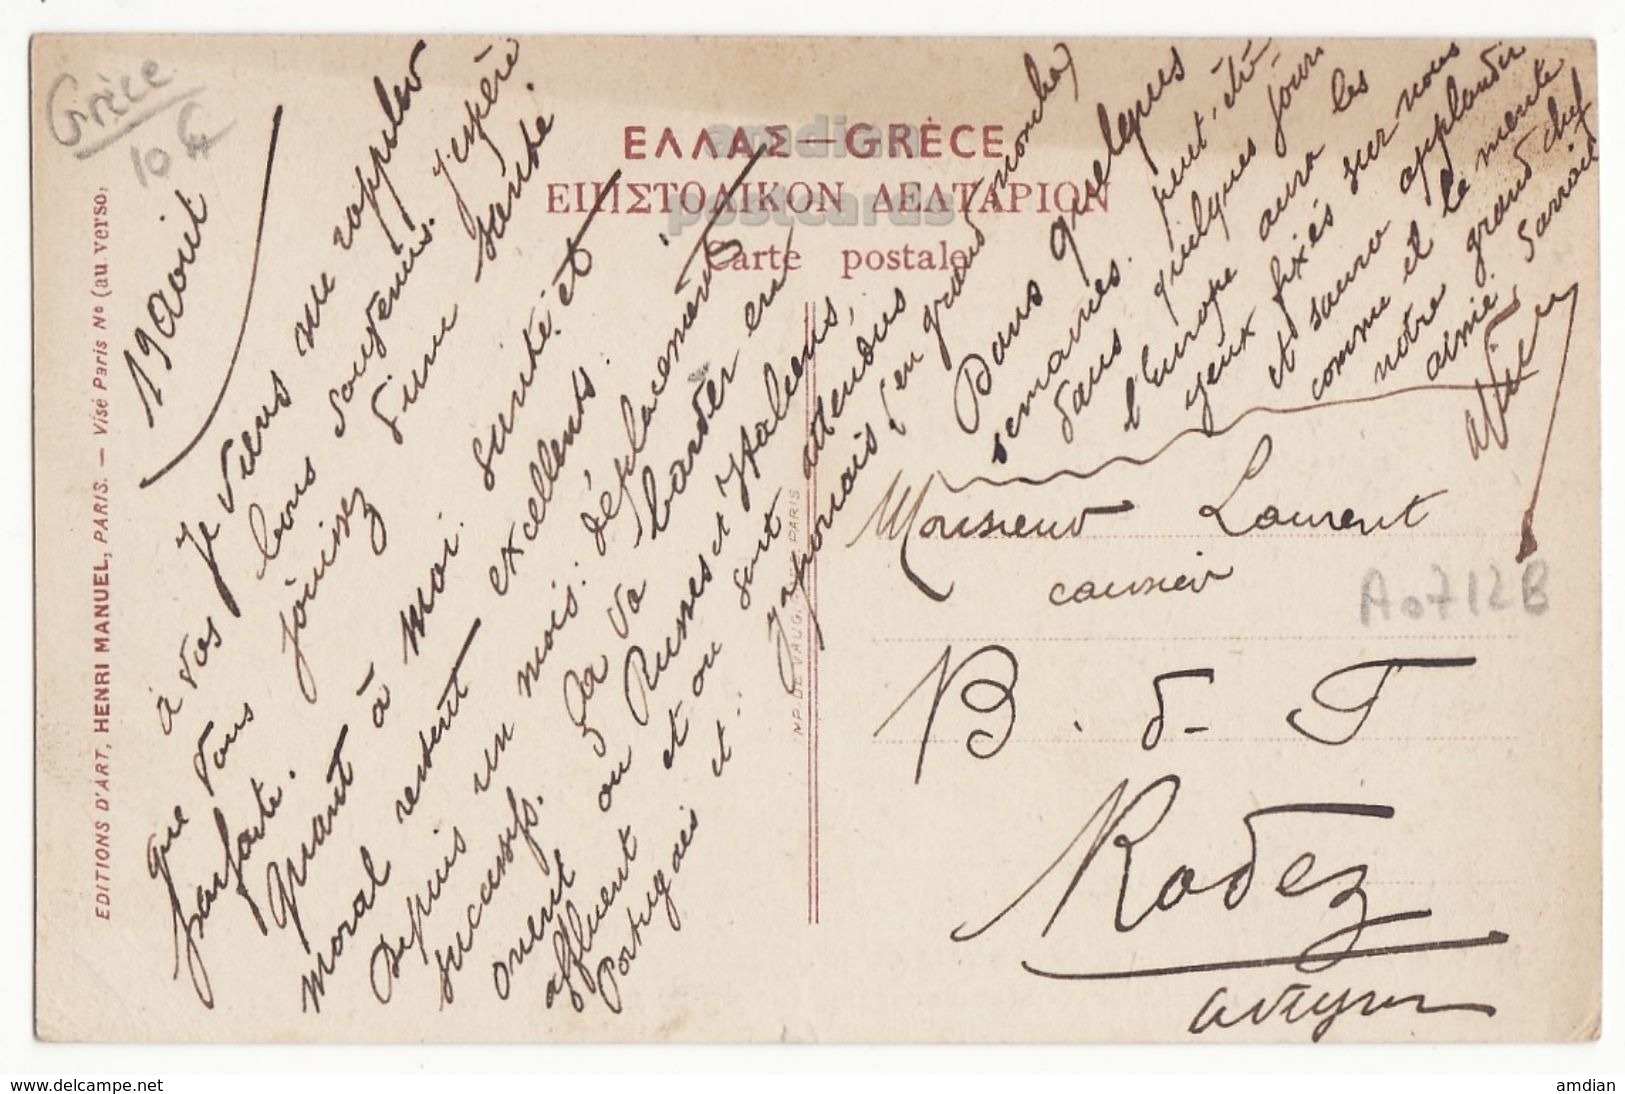 Grèce
10 €
19 Aout
Je viens me rappeler
à vos bons souvenirs. J'espère
que vous jouissez d'une santé
parfaite.
Quant à moi. santé et
moral restent excellents.
Depuis un mois: déplacements
successifs. Ça va barder en
orient ou Russes et Italiens,
affluent et ou sont attendus
Portugais et japonais! (en grand
Dans quelques
semaines. peut-être
dans quelques jours
l'Europe aura les
yeux fixés sur nous
et saura applaudir
comme il le mérite
notre grand chef
aimé. Sarrail
ΕΛΛΑΣ — GRÈCE
ΕΠΙΣΤΟΛΙΚΟΝ ΔΕΛΤΑΡΙΟΝ
Carte postale
amdian
postcards
EDITIONS D'ART, HENRI MANUEL, PARIS. — Visé Paris No (au verso,
IMP. DE VAUG PARIS
Monsieur Laurent
caissier
B. d- F
Rodez
Aveyron
A0712B
www.delcampe.net
amdian